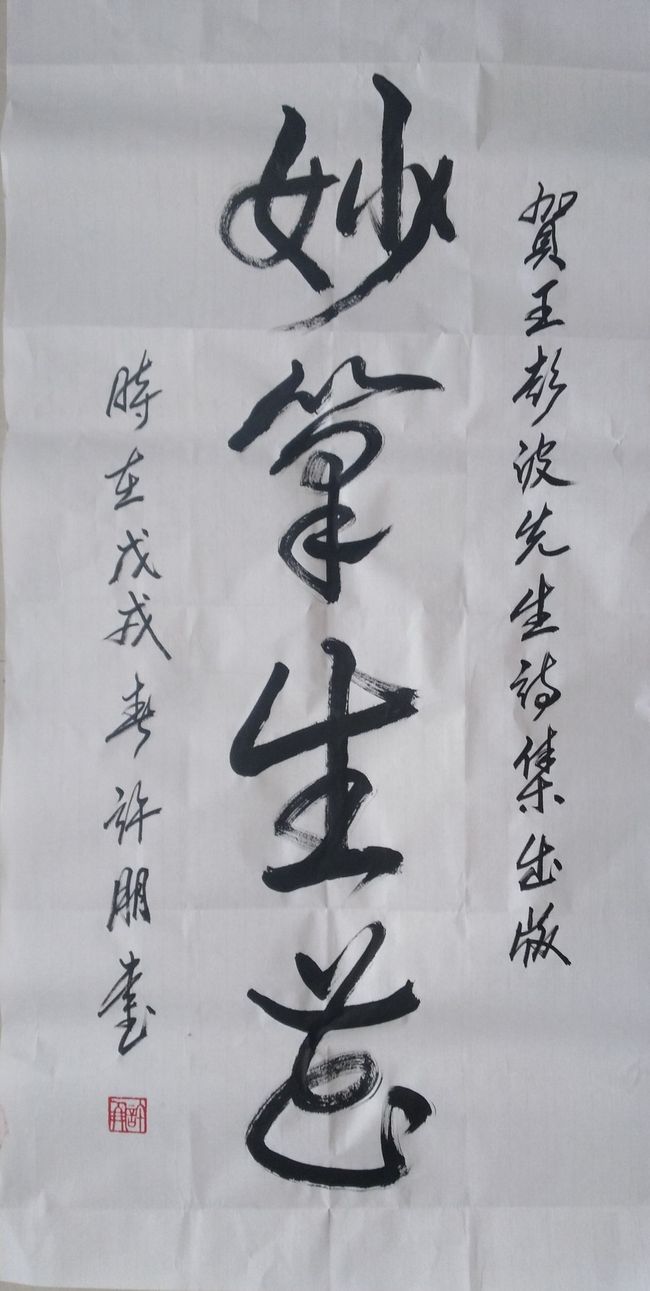 賀王彭波先生詩集出版
妙筆生花
時在戊戌春許朋書
許朋